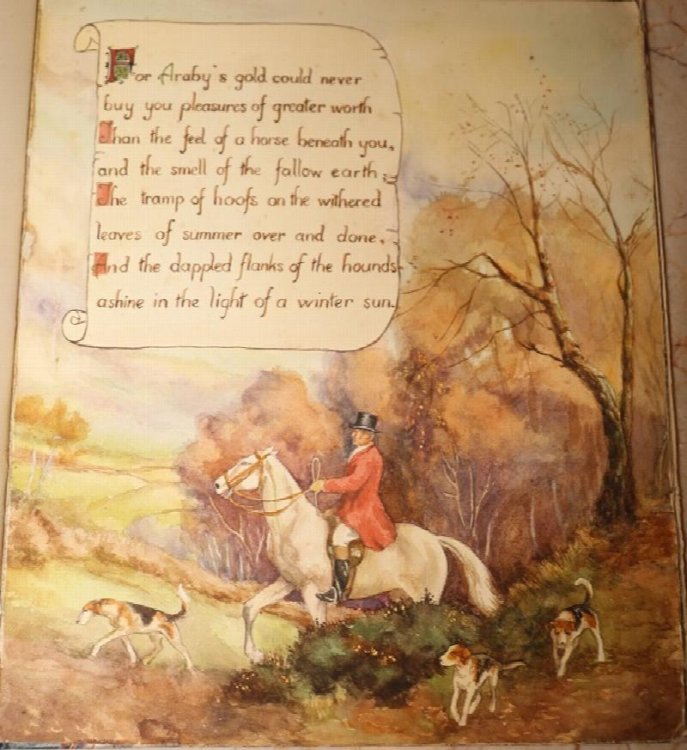 For Araby's gold could never
buy you pleasures of greater worth
Than the feel of a horse beneath you,
and the smell of the fallow earth;
The tramp of hoofs on the withered
leaves of summer over and done,
And the dappled flanks of the hounds
ashine in the light of a winter sun.